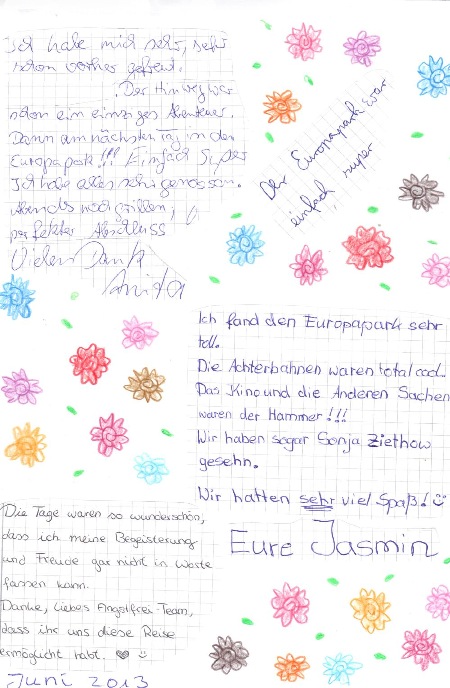 Ich habe mich sehr, sehr
schon vorher gefreut.
Der Hinweg war
schon ein einziges Abenteuer.
Dann am nächsten Tag in den
Europapark!!! Einfach super
Ich habe alles sehr genossen.
Abends noch grillen,
perfekter Abschluss
Vielen Dank
Anita
Der Europapark war
einfach super
Ich fand den Europapark sehr
toll.
Die Achterbahnen waren total cool.
Das Kino und die Anderen Sachen
waren der Hammer!!!
Wir haben sogar Sonja Ziethow
gesehn.
Wir hatten sehr viel Spaß!
Eure Jasmin
Die Tage waren so wunderschön,
dass ich meine Begeisterung
und Freude gar nicht in Worte
fassen kann.
Danke, liebes Angstfrei-Team,
dass ihr uns diese Reise
ermöglicht habt.
Juni 2013